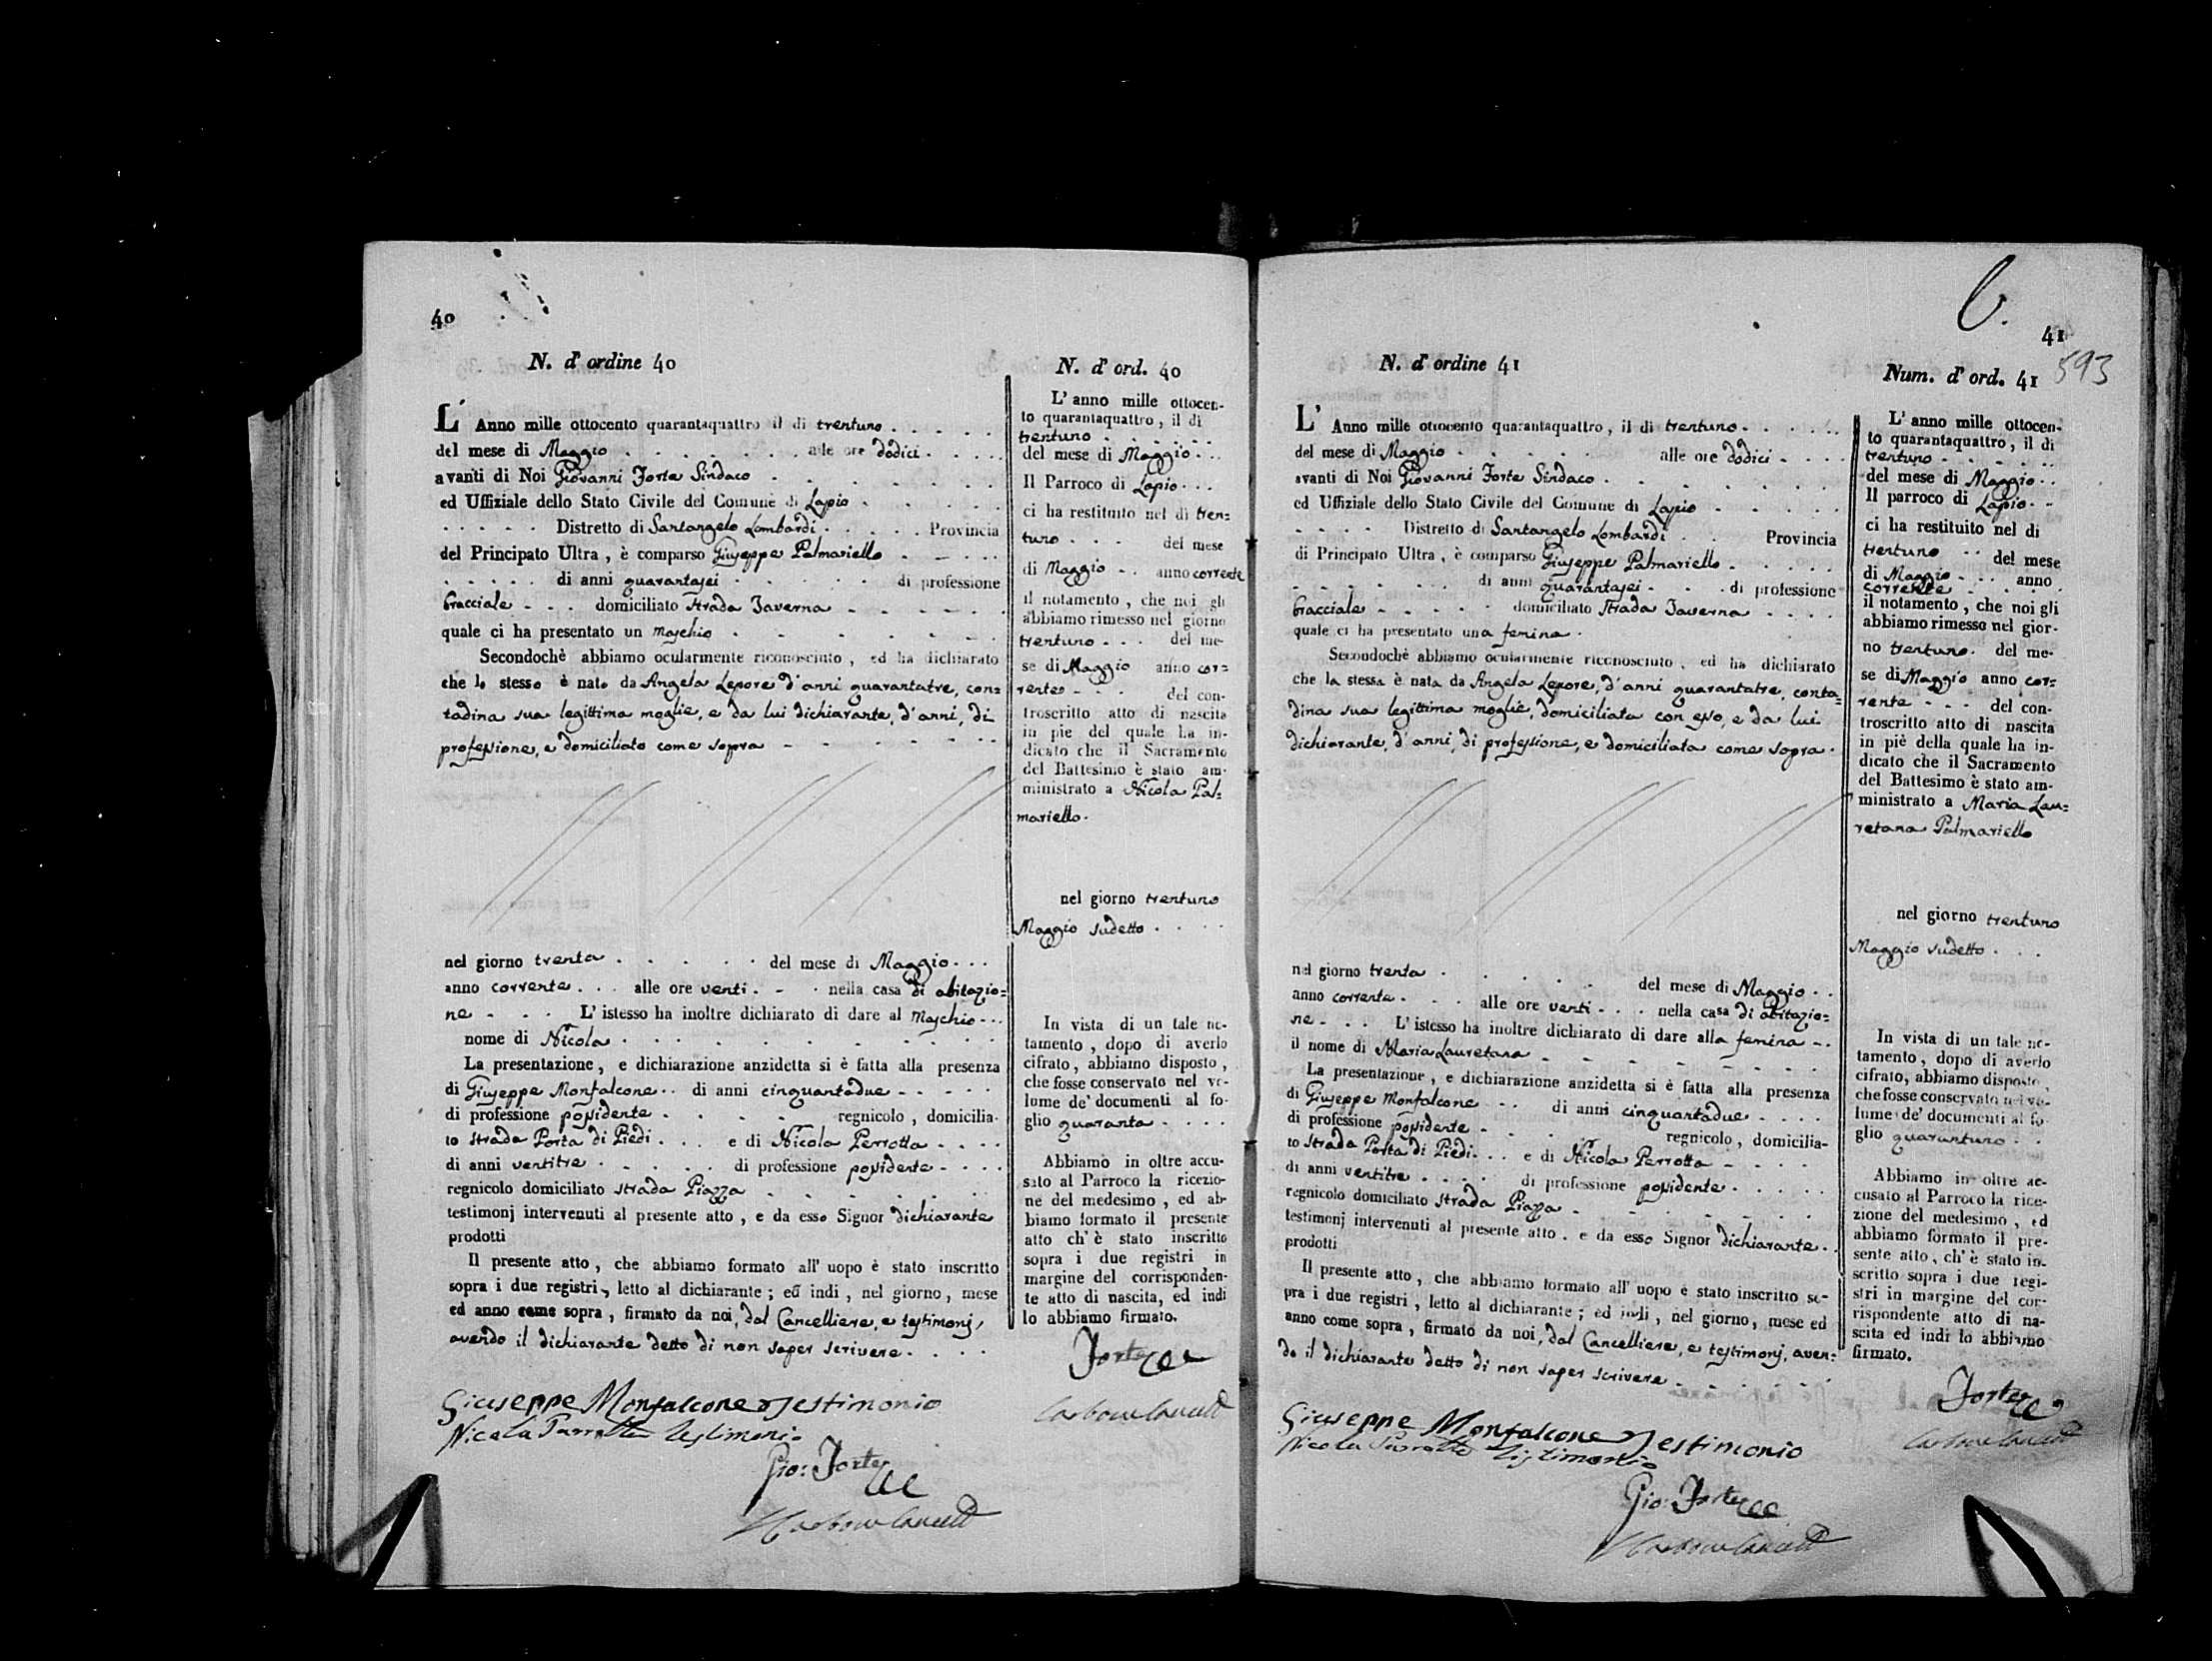 40
N. d' ordine 40
L' Anno mille ottocento quarantaquattro il di trentuno
del mese di Maggio alle ore dodici
avanti di Noi Giovanni Forte Sindaco
ed Uffiziale dello Stato Civile del Comune di Lapio
Distretto di Santangelo Lombardi Provincia
del Principato Ultra, è comparso Giuseppe Palmariello
di anni quarantasei di professione
bracciale domiciliato strada Taverna
quale ci ha presentato un maschio
Secondochè abbiamo ocularmente riconosciuto, ed ha dichiarato
che lo stesso è nato da Angela Lepore d'anni quarantatre, con=
tadina sua legittima moglie, e da lui dichiarante, d'anni, di
professione, e domiciliato come sopra
nel giorno trenta del mese di Maggio
anno corrente alle ore venti nella casa di abitazio=
ne L' istesso ha inoltre dichiarato di dare al maschio
nome di Nicola
La presentazione, e dichiarazione anzidetta si è fatta alla presenza
di Giuseppe Monfalcone di anni cinquantadue
di professione possidente regnicolo, domicilia-
to strada Porta di Piedi e di Nicola Perrotta
di anni ventitre di professione possidente
regnicolo domiciliato strada Piazza
testimonj intervenuti al presente atto, e da esso Signor dichiarante
prodotti
Il presente atto, che abbiamo formato all' uopo è stato inscritto
sopra i due registri, letto al dichiarante; ed indi, nel giorno, mese
ed anno come sopra, firmato da noi, dal Cancelliere, e testimonj,
avendo il dichiarante detto di non saper scrivere
Giuseppe Monfalcone Testimonio
Nicola Parrotta testimonio
Gio: Forte
N. d' ord. 40
L' anno mille ottocen-
to quarantaquattro, il di
trentuno
del mese di Maggio
Il Parroco di Lapio
ci ha restituito nel di tren=
tuno del mese
di Maggio anno corrente
il notamento, che noi gli
abbiamo rimesso nel giorno
trentuno del me-
se di Maggio anno cor=
rente del con-
troscritto atto di nascita
in pie del quale ha in-
dicato che il Sacramento
del Battesimo è stato am-
ministrato a Nicola Pal=
mariello.
nel giorno trentuno
Maggio sudetto
In vista di un tale no-
tamento, dopo di averlo
cifrato, abbiamo disposto,
che fosse conservato nel vo-
lume de' documenti al fo-
glio quaranta
Abbiamo in oltre accu-
sato al Parroco la ricezio-
ne del medesimo, ed ab-
biamo formato il presente
atto ch' è stato inscritto
sopra i due registri in
margine del corrisponden-
te atto di nascita, ed indi
lo abbiamo firmato.
Forte
41
593
N. d' ordine 41
L' Anno mille ottocento quarantaquattro, il di trentuno
del mese di Maggio alle ore dodici
avanti di Noi Giovanni Forte Sindaco
ed Uffiziale dello Stato Civile del Comune di Lapio
Distretto di Santangelo Lombardi Provincia
di Principato Ultra, è comparso Giuseppe Palmariello
di anni quarantasei di professione
bracciale domiciliato Strada Taverna
quale ci ha presentato una femina
Secondochè abbiamo ocularmente riconosciuto, ed ha dichiarato
che la stessa è nata da Angela Lepore, d'anni quarantatre, conta=
dina sua legittima moglie, domiciliata con esso, e da lui
dichiarante, d'anni, di professione, e domiciliata come sopra
nel giorno trenta del mese di Maggio
anno corrente alle ore venti nella casa di abitazio=
ne L' istesso ha inoltre dichiarato di dare alla femina
il nome di Maria Lauretana
La presentazione, e dichiarazione anzidetta si è fatta alla presenza
di Giuseppe Monfalcone di anni cinquantadue
di professione possidente regnicolo, domicilia-
to Strada Porta di Piedi e di Nicola Perrotta
di anni ventitre di professione possidente
regnicolo domiciliato strada Piazza
testimonj intervenuti al presente atto. e da esso Signor dichiarante
prodotti
Il presente atto, che abbiamo formato all' uopo è stato inscritto so-
pra i due registri, letto al dichiarante; ed indi, nel giorno, mese ed
anno come sopra, firmato da noi, dal Cancelliere, e testimonj, aven=
do il dichiarante detto di non saper scrivere
Giuseppe Monfalcone Testimonio
Nicola Parrotta testimonio
Gio: Forte
Num. d' ord. 41
L' anno mille ottocen-
to quarantaquattro, il di
trentuno
del mese di Maggio
Il parroco di Lapio
ci ha restituito nel di
trentuno del mese
di Maggio anno
corrente
il notamento, che noi gli
abbiamo rimesso nel gior-
no trentuno del me-
se di Maggio anno cor=
rente del con-
troscritto atto di nascita
in piè della quale ha in-
dicato che il Sacramento
del Battesimo è stato am-
ministrato a Maria Lau=
retana Palmariello
nel giorno trentuno
Maggio sudetto
In vista di un tale no-
tamento, dopo di averlo
cifrato, abbiamo disposto,
che fosse conservato nel vo-
lume de' documenti al fo-
glio quarantuno
Abbiamo in oltre ac-
cusato al Parroco la rice-
zione del medesimo, ed
abbiamo formato il pre-
sente atto, ch' è stato in-
scritto sopra i due regi-
stri in margine del cor-
rispondente atto di na-
scita ed indi lo abbiamo
firmato.
Forte